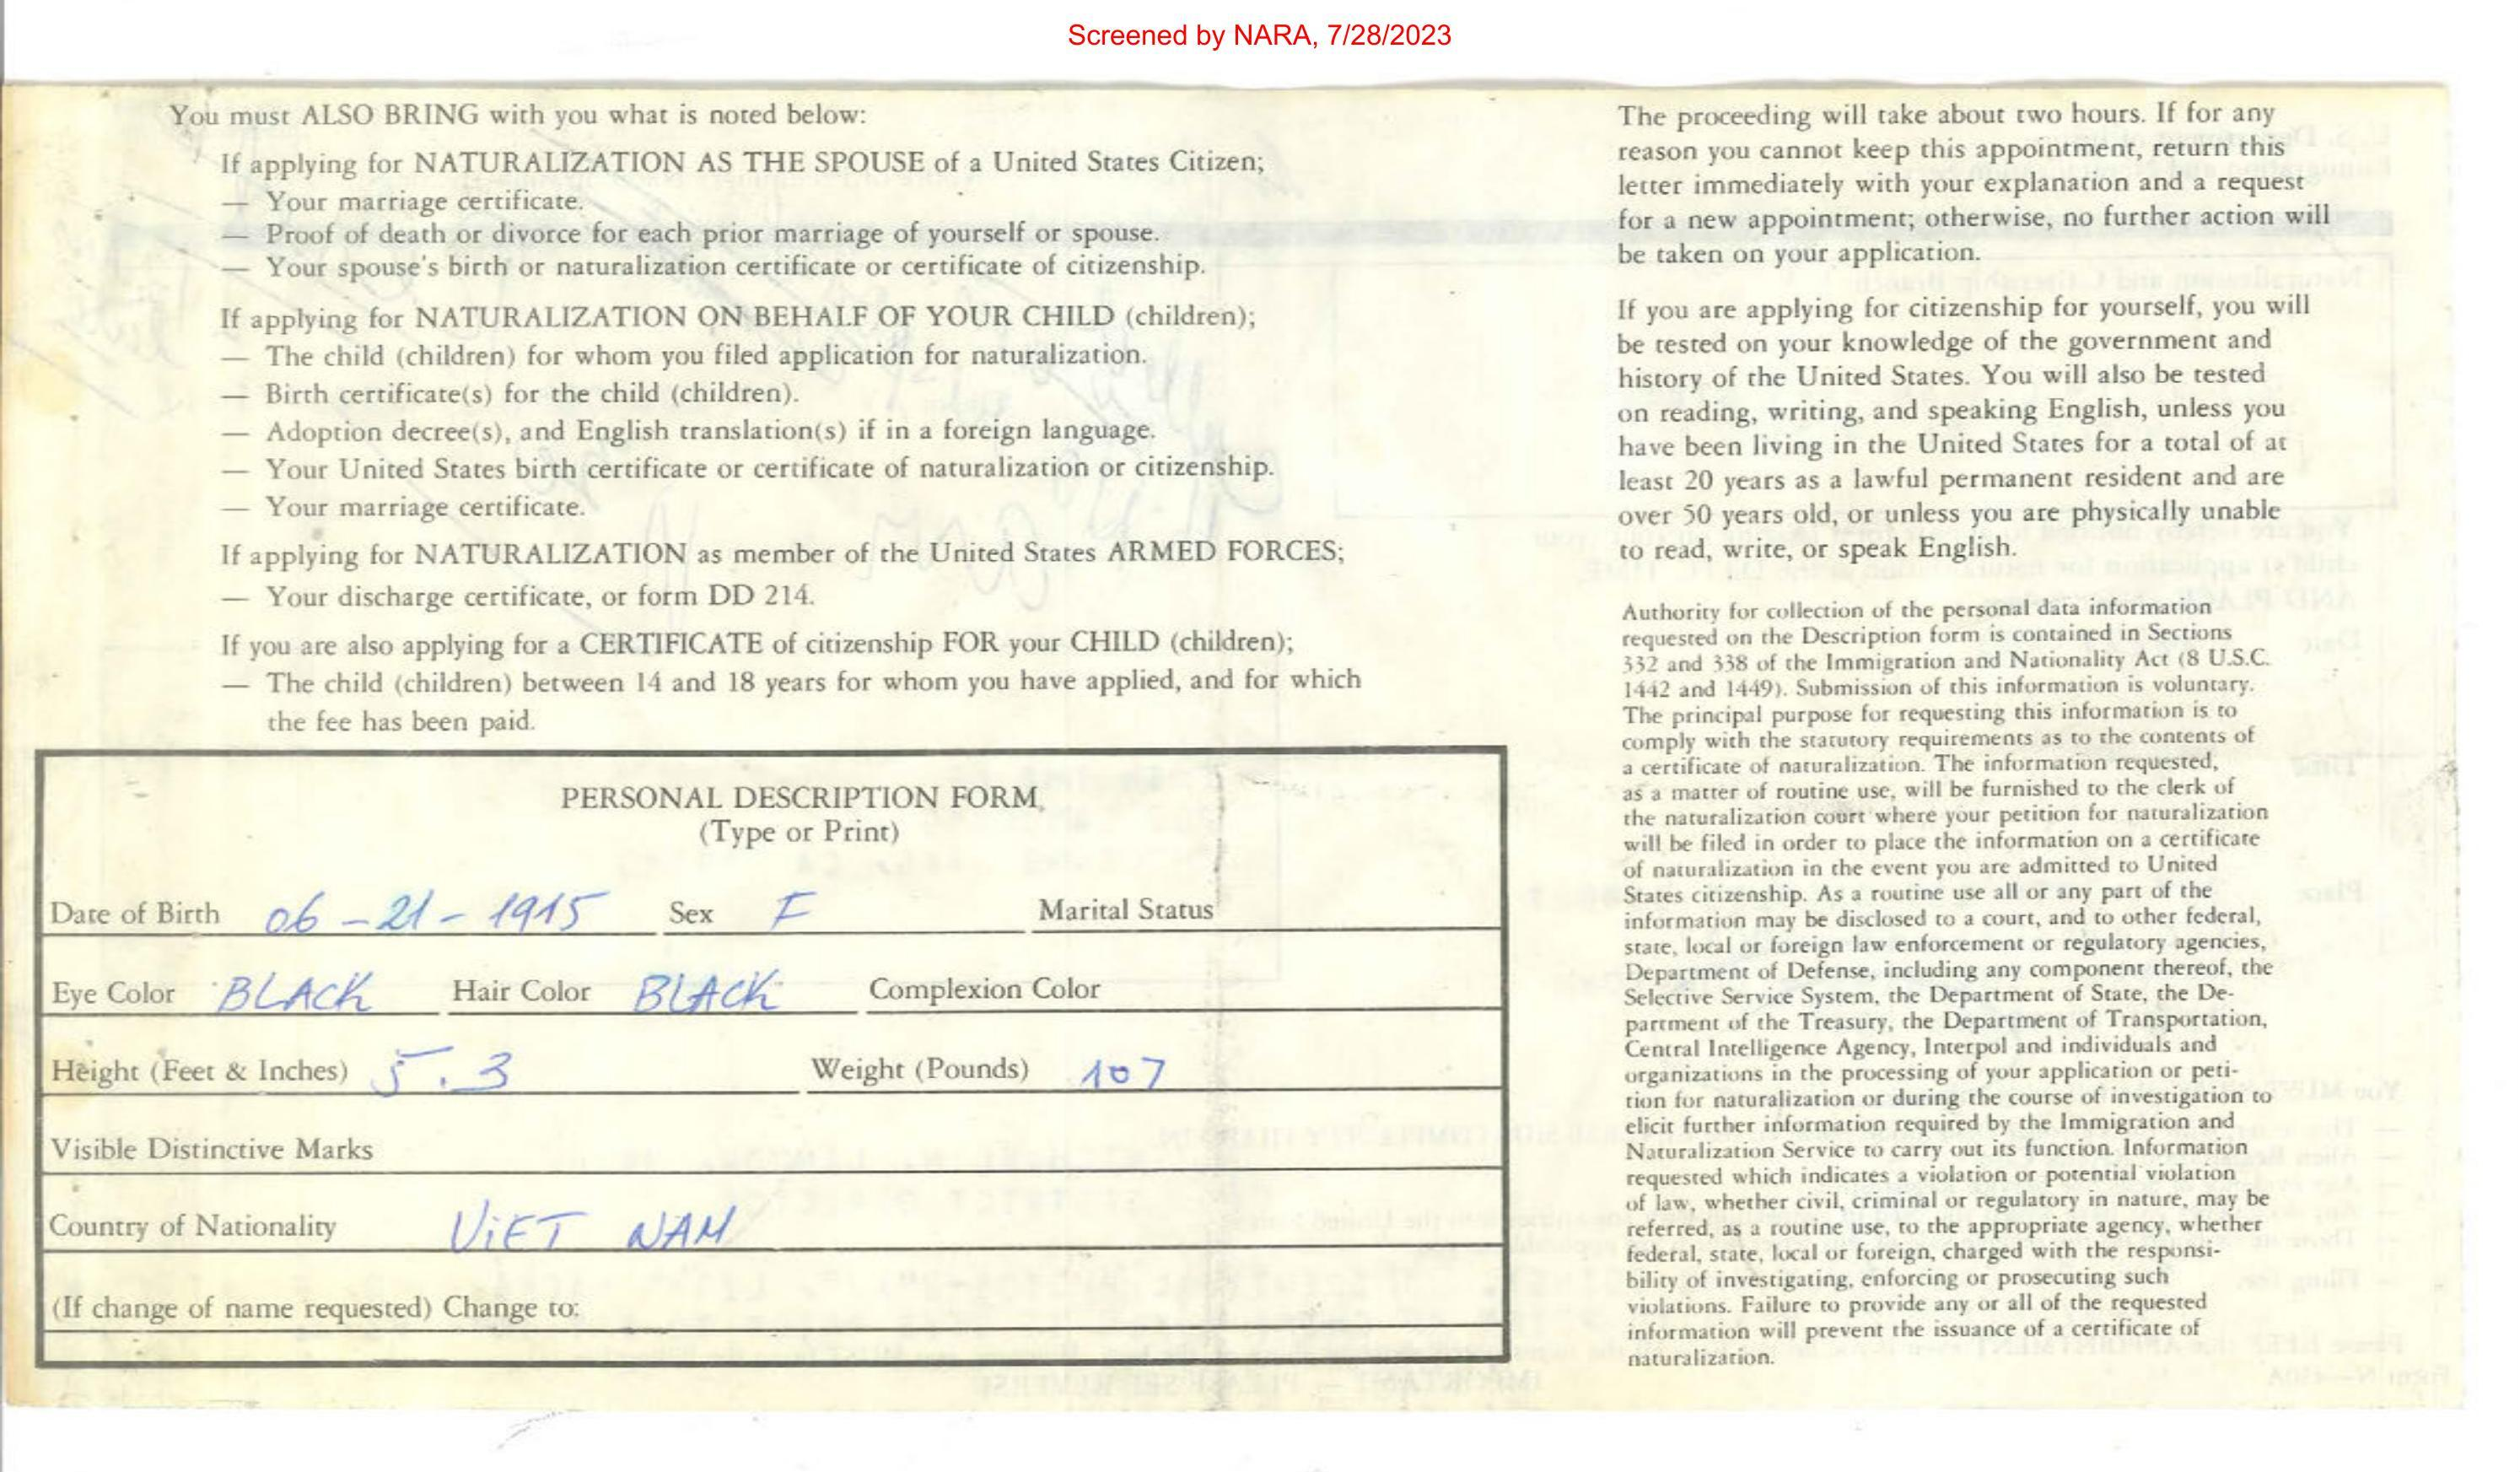 Screened by NARA, 7/28/2023
You must ALSO BRING with you what is noted below:
If applying for NATURALIZATION AS THE SPOUSE of a United States Citizen;
— Your marriage certificate.
— Proof of death or divorce for each prior marriage of yourself or spouse.
— Your spouse's birth or naturalization certificate or certificate of citizenship.
If applying for NATURALIZATION ON BEHALF OF YOUR CHILD (children);
— The child (children) for whom you filed application for naturalization.
— Birth certificate(s) for the child (children).
— Adoption decree(s), and English translation(s) if in a foreign language.
— Your United States birth certificate or certificate of naturalization or citizenship.
— Your marriage certificate.
If applying for NATURALIZATION as member of the United States ARMED FORCES;
— Your discharge certificate, or form DD 214.
If you are also applying for a CERTIFICATE of citizenship FOR your CHILD (children);
— The child (children) between 14 and 18 years for whom you have applied, and for which
the fee has been paid.
PERSONAL DESCRIPTION FORM
(Type or Print)
Date of Birth 06-21-1915 Sex F Marital Status
Eye Color BLACK Hair Color BLACK Complexion Color
Height (Feet & Inches) 5.3 Weight (Pounds) 107
Visible Distinctive Marks
Country of Nationality ViET NAM
(If change of name requested) Change to:
The proceeding will take about two hours. If for any
reason you cannot keep this appointment, return this
letter immediately with your explanation and a request
for a new appointment; otherwise, no further action will
be taken on your application.
If you are applying for citizenship for yourself, you will
be tested on your knowledge of the government and
history of the United States. You will also be tested
on reading, writing, and speaking English, unless you
have been living in the United States for a total of at
least 20 years as a lawful permanent resident and are
over 50 years old, or unless you are physically unable
to read, write, or speak English.
Authority for collection of the personal data information
requested on the Description form is contained in Sections
332 and 338 of the Immigration and Nationality Act (8 U.S.C.
1442 and 1449). Submission of this information is voluntary.
The principal purpose for requesting this information is to
comply with the statutory requirements as to the contents of
a certificate of naturalization. The information requested,
as a matter of routine use, will be furnished to the clerk of
the naturalization court where your petition for naturalization
will be filed in order to place the information on a certificate
of naturalization in the event you are admitted to United
States citizenship. As a routine use all or any part of the
information may be disclosed to a court, and to other federal,
state, local or foreign law enforcement or regulatory agencies,
Department of Defense, including any component thereof, the
Selective Service System, the Department of State, the De-
partment of the Treasury, the Department of Transportation,
Central Intelligence Agency, Interpol and individuals and
organizations in the processing of your application or peti-
tion for naturalization or during the course of investigation to
elicit further information required by the Immigration and
Naturalization Service to carry out its function. Information
requested which indicates a violation or potential violation
of law, whether civil, criminal or regulatory in nature, may be
referred, as a routine use, to the appropriate agency, whether
federal, state, local or foreign, charged with the responsi-
bility of investigating, enforcing or prosecuting such
violations. Failure to provide any or all of the requested
information will prevent the issuance of a certificate of
naturalization.